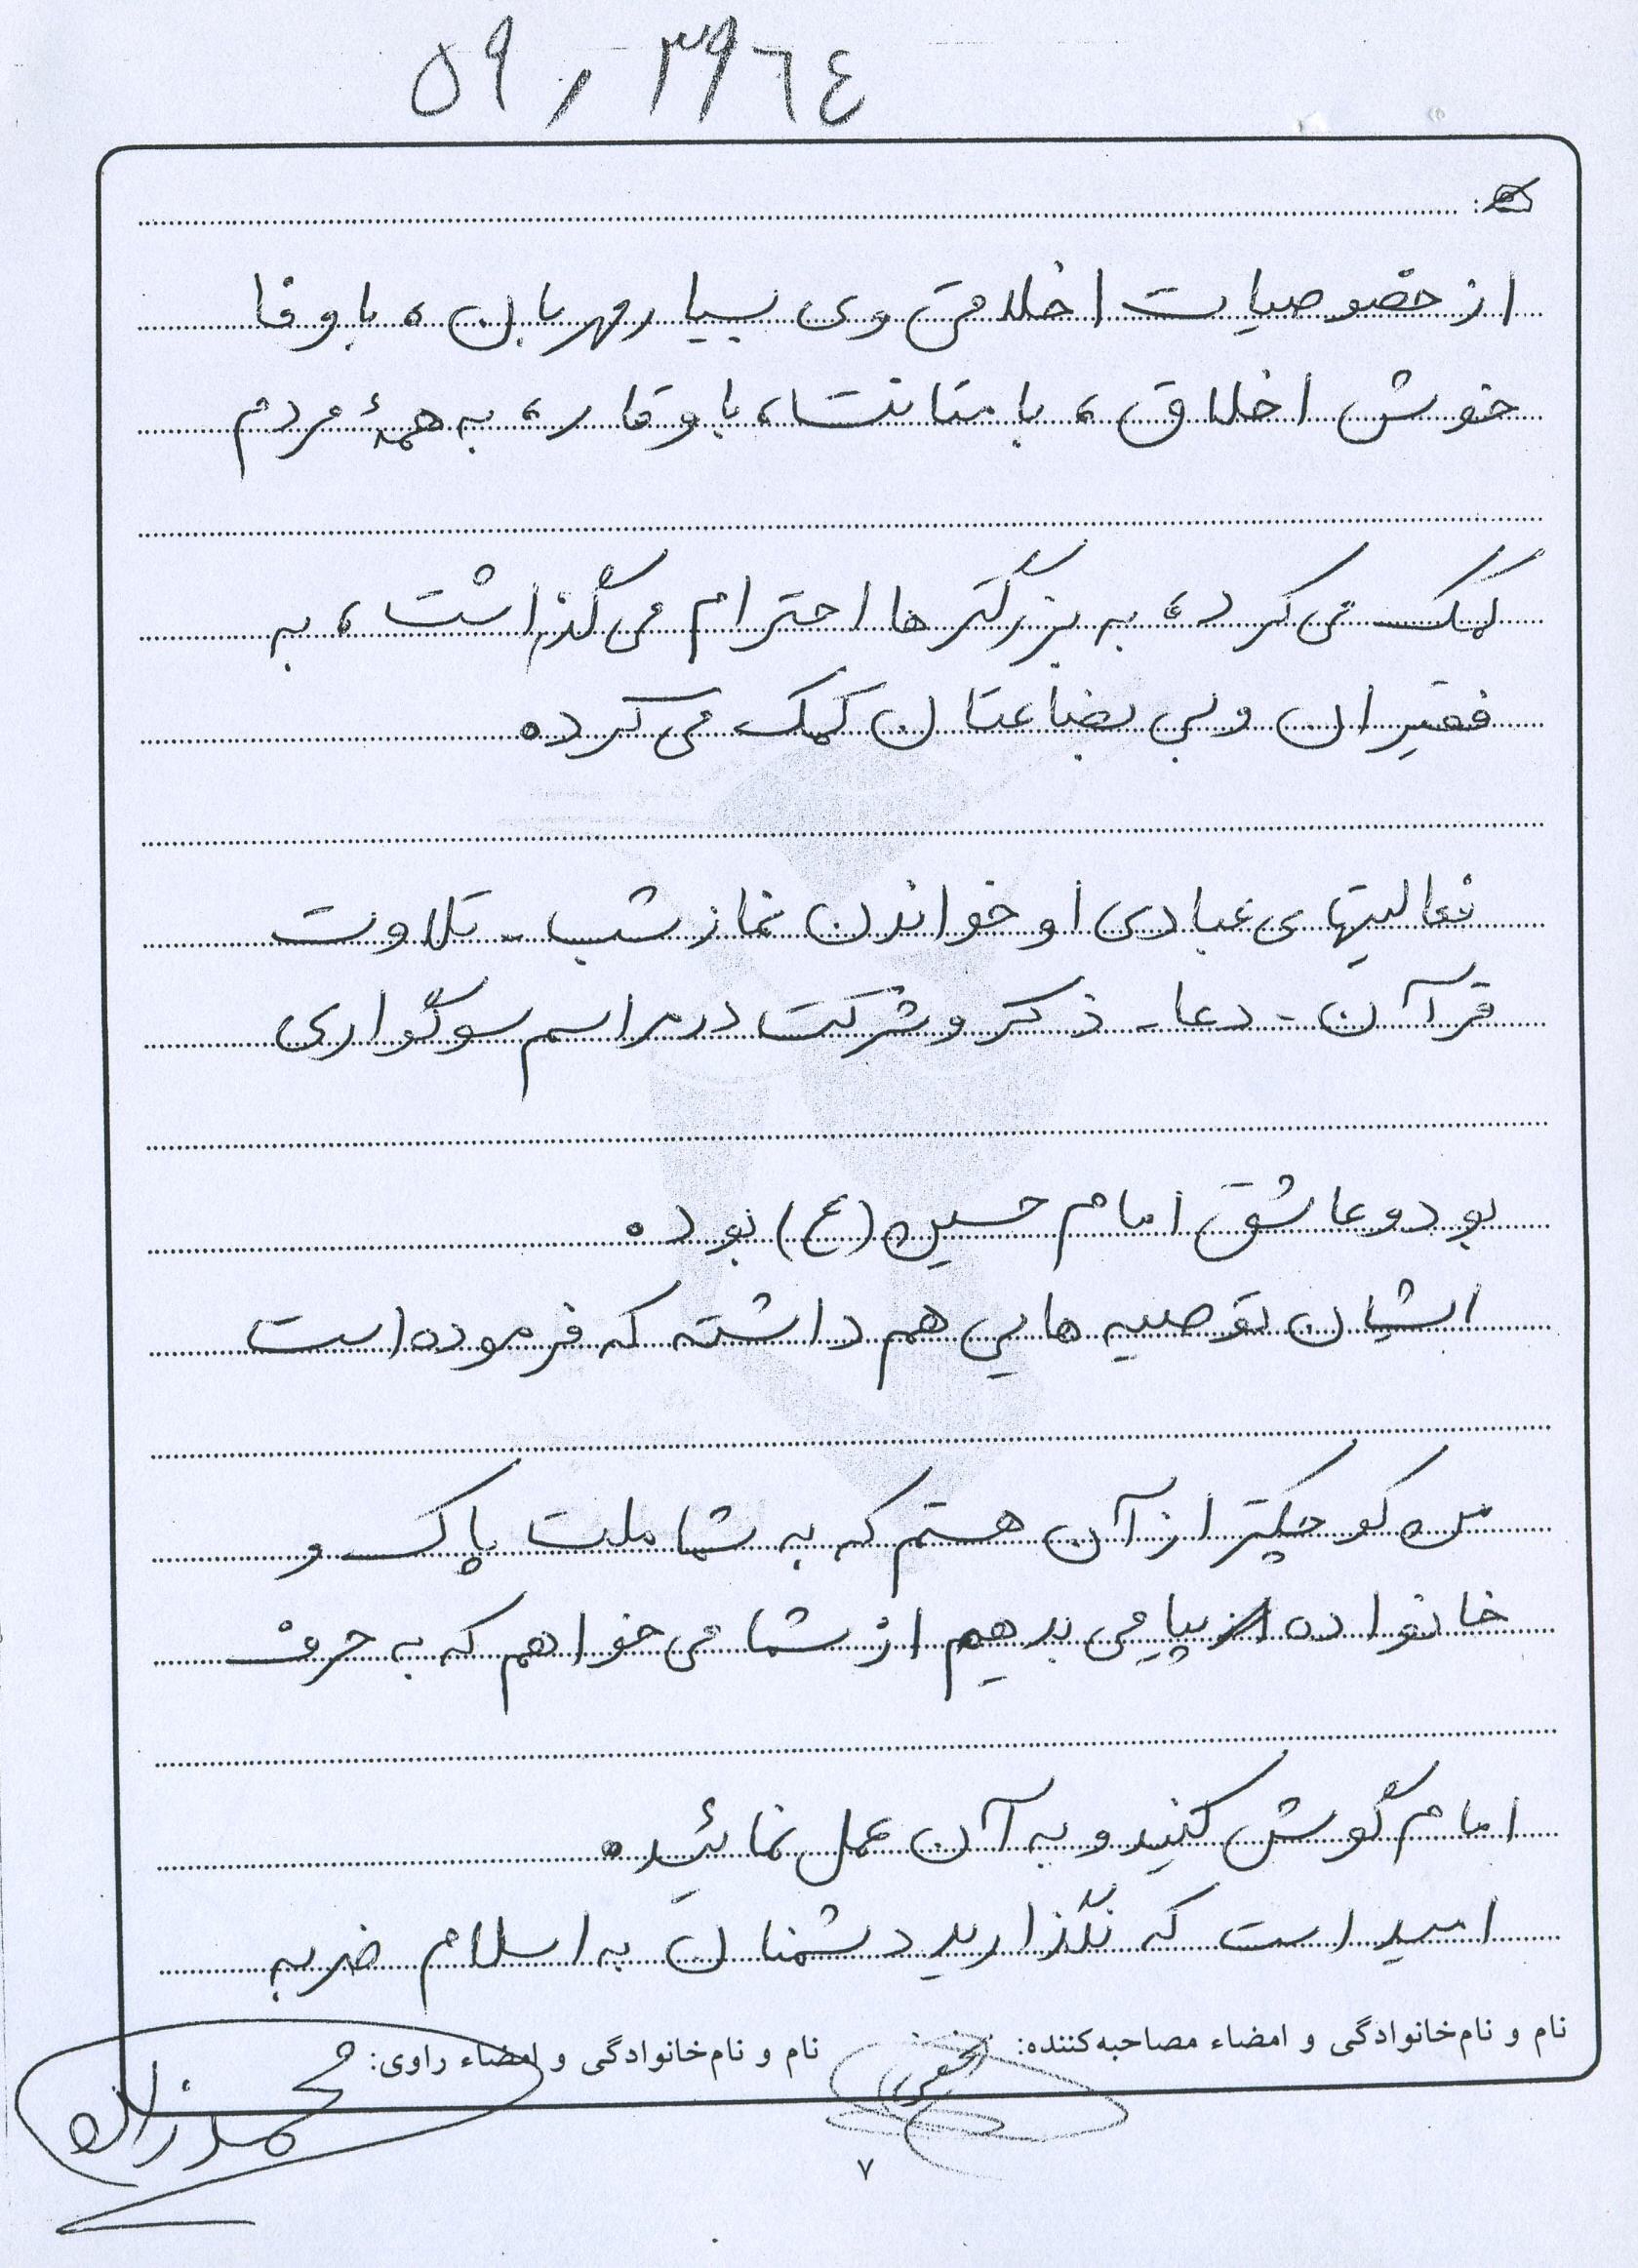 ۵۹ / ۳۹۶۴
از خصوصیات اخلاقی وی بسیار مهربان ، با وفا
خوش اخلاق ، با متانت ، با وقار ، به همهٔ مردم
کمک می کرد ، به بزرگترها احترام می گذاشت ، به
فقیران و بی بضاعتان کمک می کرد.
فعالیتهای عبادی او خواندن نماز شب - تلاوت
قرآن - دعا - ذکر و شرکت در مراسم سوگواری
بود و عاشق امام حسین (ع) بود.
ایشان توصیه هایی هم داشته که فرموده است
من کوچکتر از آن هستم که به شما ملت پاک و
خانواده پیامی بدهیم از شما می خواهم که به حرف
امام گوش کنید و به آن عمل نمائید.
امید است که نگذارید دشمنان به اسلام ضربه
نام و نام‌خانوادگی و امضاء مصاحبه‌کننده: نام و نام‌خانوادگی و امضاء راوی:
محمد
۷